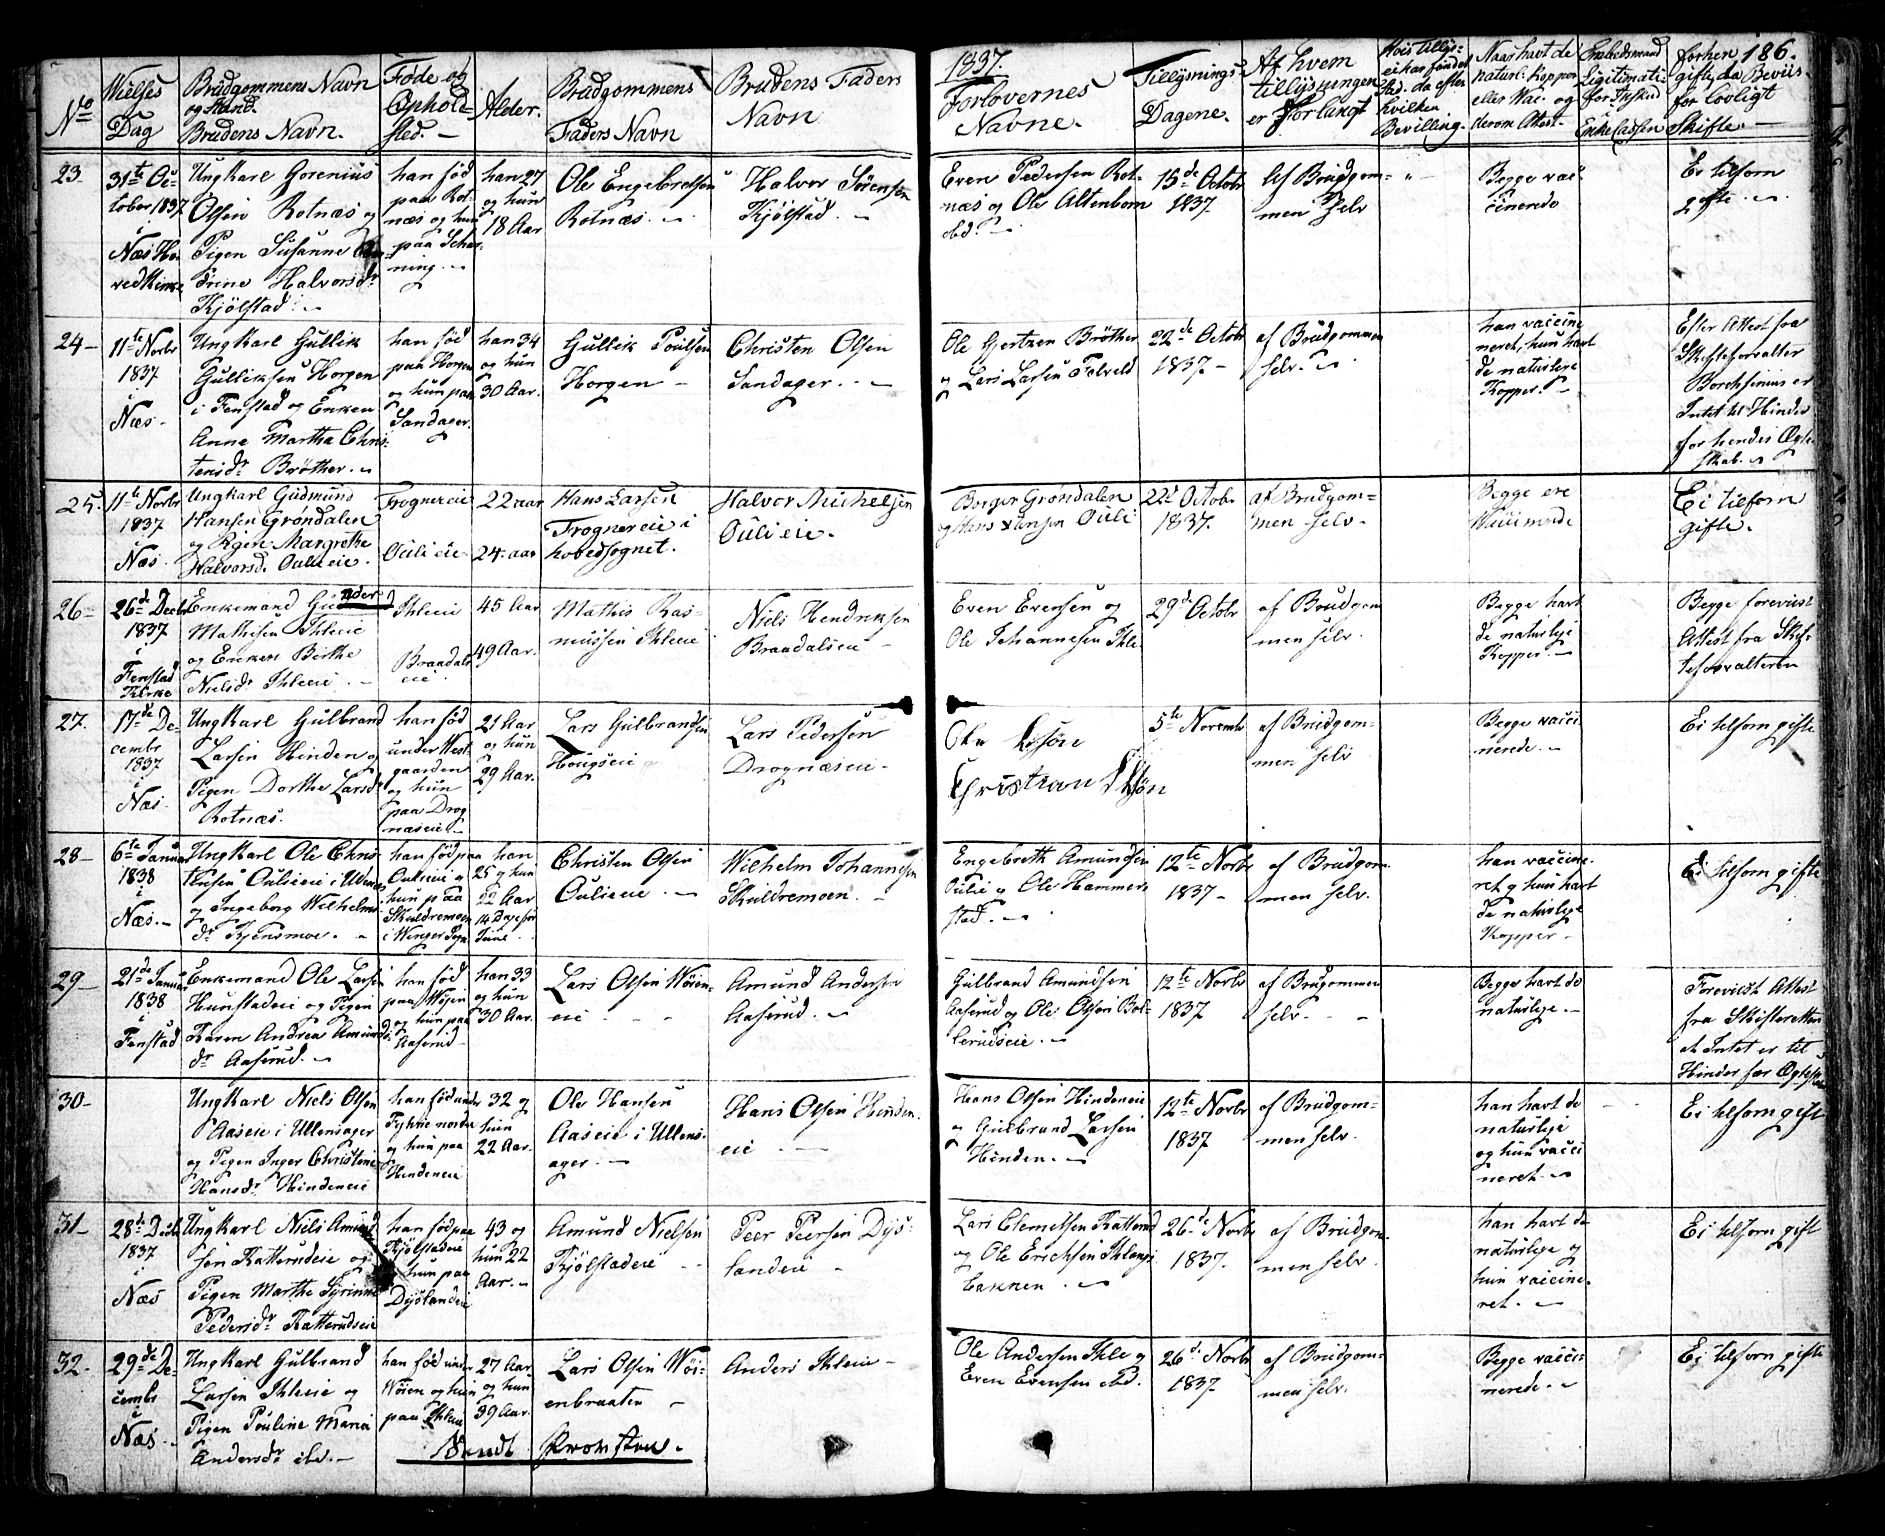 1837. 186.
No
Wielses Dag
Brudgommens Navn og Stand. Brudens Navn.
Føde og Opholdsted. -
Alder.
Brudgommens Faders Navn
Brudens Faders Navn
Forlovernes Navne.
Tillysnings Dagene.
Af hvem tillysningen er forlangt
Hvis tillys- ei har fundet Sted. da efter hvilken Bevilling.
Naar havt de naturl: Kopper eller Vac. og derom Attest.
Embedsmand Legitimati: for Inskud Enkecassen
forhen gifte, da Beviis for lovligt Skifte.
23.
31te October 1837 i Næs Hovedkirke
Ungkarl Gorenius
Olsen Rotnæs og
Pigen Susanne
Trine Halvorsdr
Kjølstad
han fød paa Rotnæs og hun paa
han 27 og hun 18 Aar
Ole Engebretsen Rotnæs.
Halvor Sørensen Kjølstad.
Even Pedersen Rotnæs og Ole Altenborn ibd.
15de Octobr 1837.
Af Brudgommen selv
"
Begge vaccinerede
Ei tilforn gifte.
24
11te Novbr 1837 i Næs.
Ungkarl Gullik
Gulliksen Horgen
i Fenstad og Enken
Anne Martha Christensdr Brøther.
han fød paa Horgen og hun paa Sandager.
han 34 og hun 30 Aar.
Gullik Poulsen Horgen
Christen Olsen Sandager.
Ole Gjertzen Brøther og Lars Larsen Felveld
22de Octobr 1837.
af Brudgommen selv.
han vaccineneret, hun havt de naturlige Kopper.
Efter Attest fra Skifteforvalter Borchsenius er Intet til Hinder for hendes Ægteskab.
25.
11te Novbr 1837 i Næs.
Ungkarl Gudmund
Hansen Grøndalen
og Pigen Margrethe
Halvorsd. Oulieie.
Frognereie
Oulieie
22 aar
24 aar
Hans Larsen Frognereie i hovedsognet.
Halvor Michelsen Oulieie.
Borger Grøndalen og Hans Jensen Ouli
22d Octobr 1837.
af Brudgommen selv.
Begge ere
Ei tilforn gifte.
26
26de Decbr 1837 i Fenstad Kirke
Enkemand Gunder
Mathisen Ihleeie
og Enken Birthe
Nielsdr Ihleeie
Ihleeie
Braadalseie
45 Aar
49 Aar.
Mathis Rasmussen Ihleeie
Niels Hendriksen Braadalseie
Even Evensen og Ole Johannesen Ihle
29d Octobr
af Brudgommen selv.
Begge havt de naturlige Kopper.
Begge foreviist Attest fra Skifteforvalteren
27.
17de December 1837 i Næs.
Ungkarl Gulbrand
Larsen Hinden og
Pigen Dorthe Larsdr
Rotnæs.
han fød under Westgaarden og hun paa Drognæseie
21 Aar og hun 29 Aar.
Lars Gulbrandsen Hougseie
Lars Pedersen Drognæseie.
Christian
5te Novemb
af Brudgommen selv
Begge vaccinerede.
Ei tilforn gifte
28
6te Januar 1838 i Næs.
Ungkarl Ole Christensen Oulieie i Ullensager
og Ingeborg Wilhelmsdr Kjensmoe.
han fød paa Oulieie og hun paa Skuldremoen i Winger Sogn
han 25 og hun 22 Aar 14 Dage før Juul.
Christen Olsen Oulieie
Wilhelm Johannesen Skuldremoen.
Engebreth Amundsen Oulie og Ole Hammerstad.
12te Novbr 1837
af Brudgommen selv.
han vaccineret og hun havt de naturlige Kopper
Ei tilforn gifte
29
21de Januar 1838 i Fenstad
Enkemand Ole Larsen
Hunstadeie og Pigen
Karen Andrea Amundsdr Aaserud.
han fød paa Wøien og hun paa Aaserud
han 33 og hun 30 Aar.
Lars Olsen Wøieneie
Amund Andersen Aaserud.
Gulbrand Amundsen Aaserud og Ole Olsen Bollerudseie.
12te Novbr 1837
af Brudgommen selv.
Begge havt de naturlige.
Foreviist Attest fra Skifteretten at Intet er til Hinder for Ægteskab
30
Ungkarl Niels Olsen
Aaseie i Ullensager
og Pigen Inger Christine
Hansdr Hindeneie
han fød under Fyhne nordre og hun paa Hindeneie
32 og hun 22 Aar.
Ole Hansen Aaseie i Ullensager.
Hans Olsen Hindeneie
Hans Olsen Hindeneie og Gulbrand Larsen Hinden.
12te Novbr 1837
af Brudgommen selv.
han havt de naturlige og hun vaccineret
Ei tilforn gift
31
28de Decbr 1837 i Næs
Ungkarl Niels Amundsen Ratterudeie og
Pigen Marthe Syrinne
Pedersdr Ratterudseie
han fød paa Kjølstadeie og hun paa Dyslandeie
43 og hun 22 Aar.
Amund Nielsen Kjølstadeie
Peer Peersen Dyslandeie
Lars Clemetsen Ratterud og Ole Erichsen Ihlangsbakken.
26de Novbr 1837.
af Brudgommen selv
han havt de naturlige og hun vaccineret.
Ei tilforn gift
32.
29de December i Næs
Ungkarl Gulbrand
Larsen Ihleeie og
Pigen Pouline Maria
Andersdr ibd.
han fød under Wøien og hun paa Ihleeie
27 Aar og hun 39 Aar.
Lars Olsen Wøienbraaten
Anders Ihleeie
Ole Andersen Ihle og Even Evensen ibd.
26d Novbr 1837
af Brudgommen selv.
Begge vaccinerede.
Ei tilforn gifte